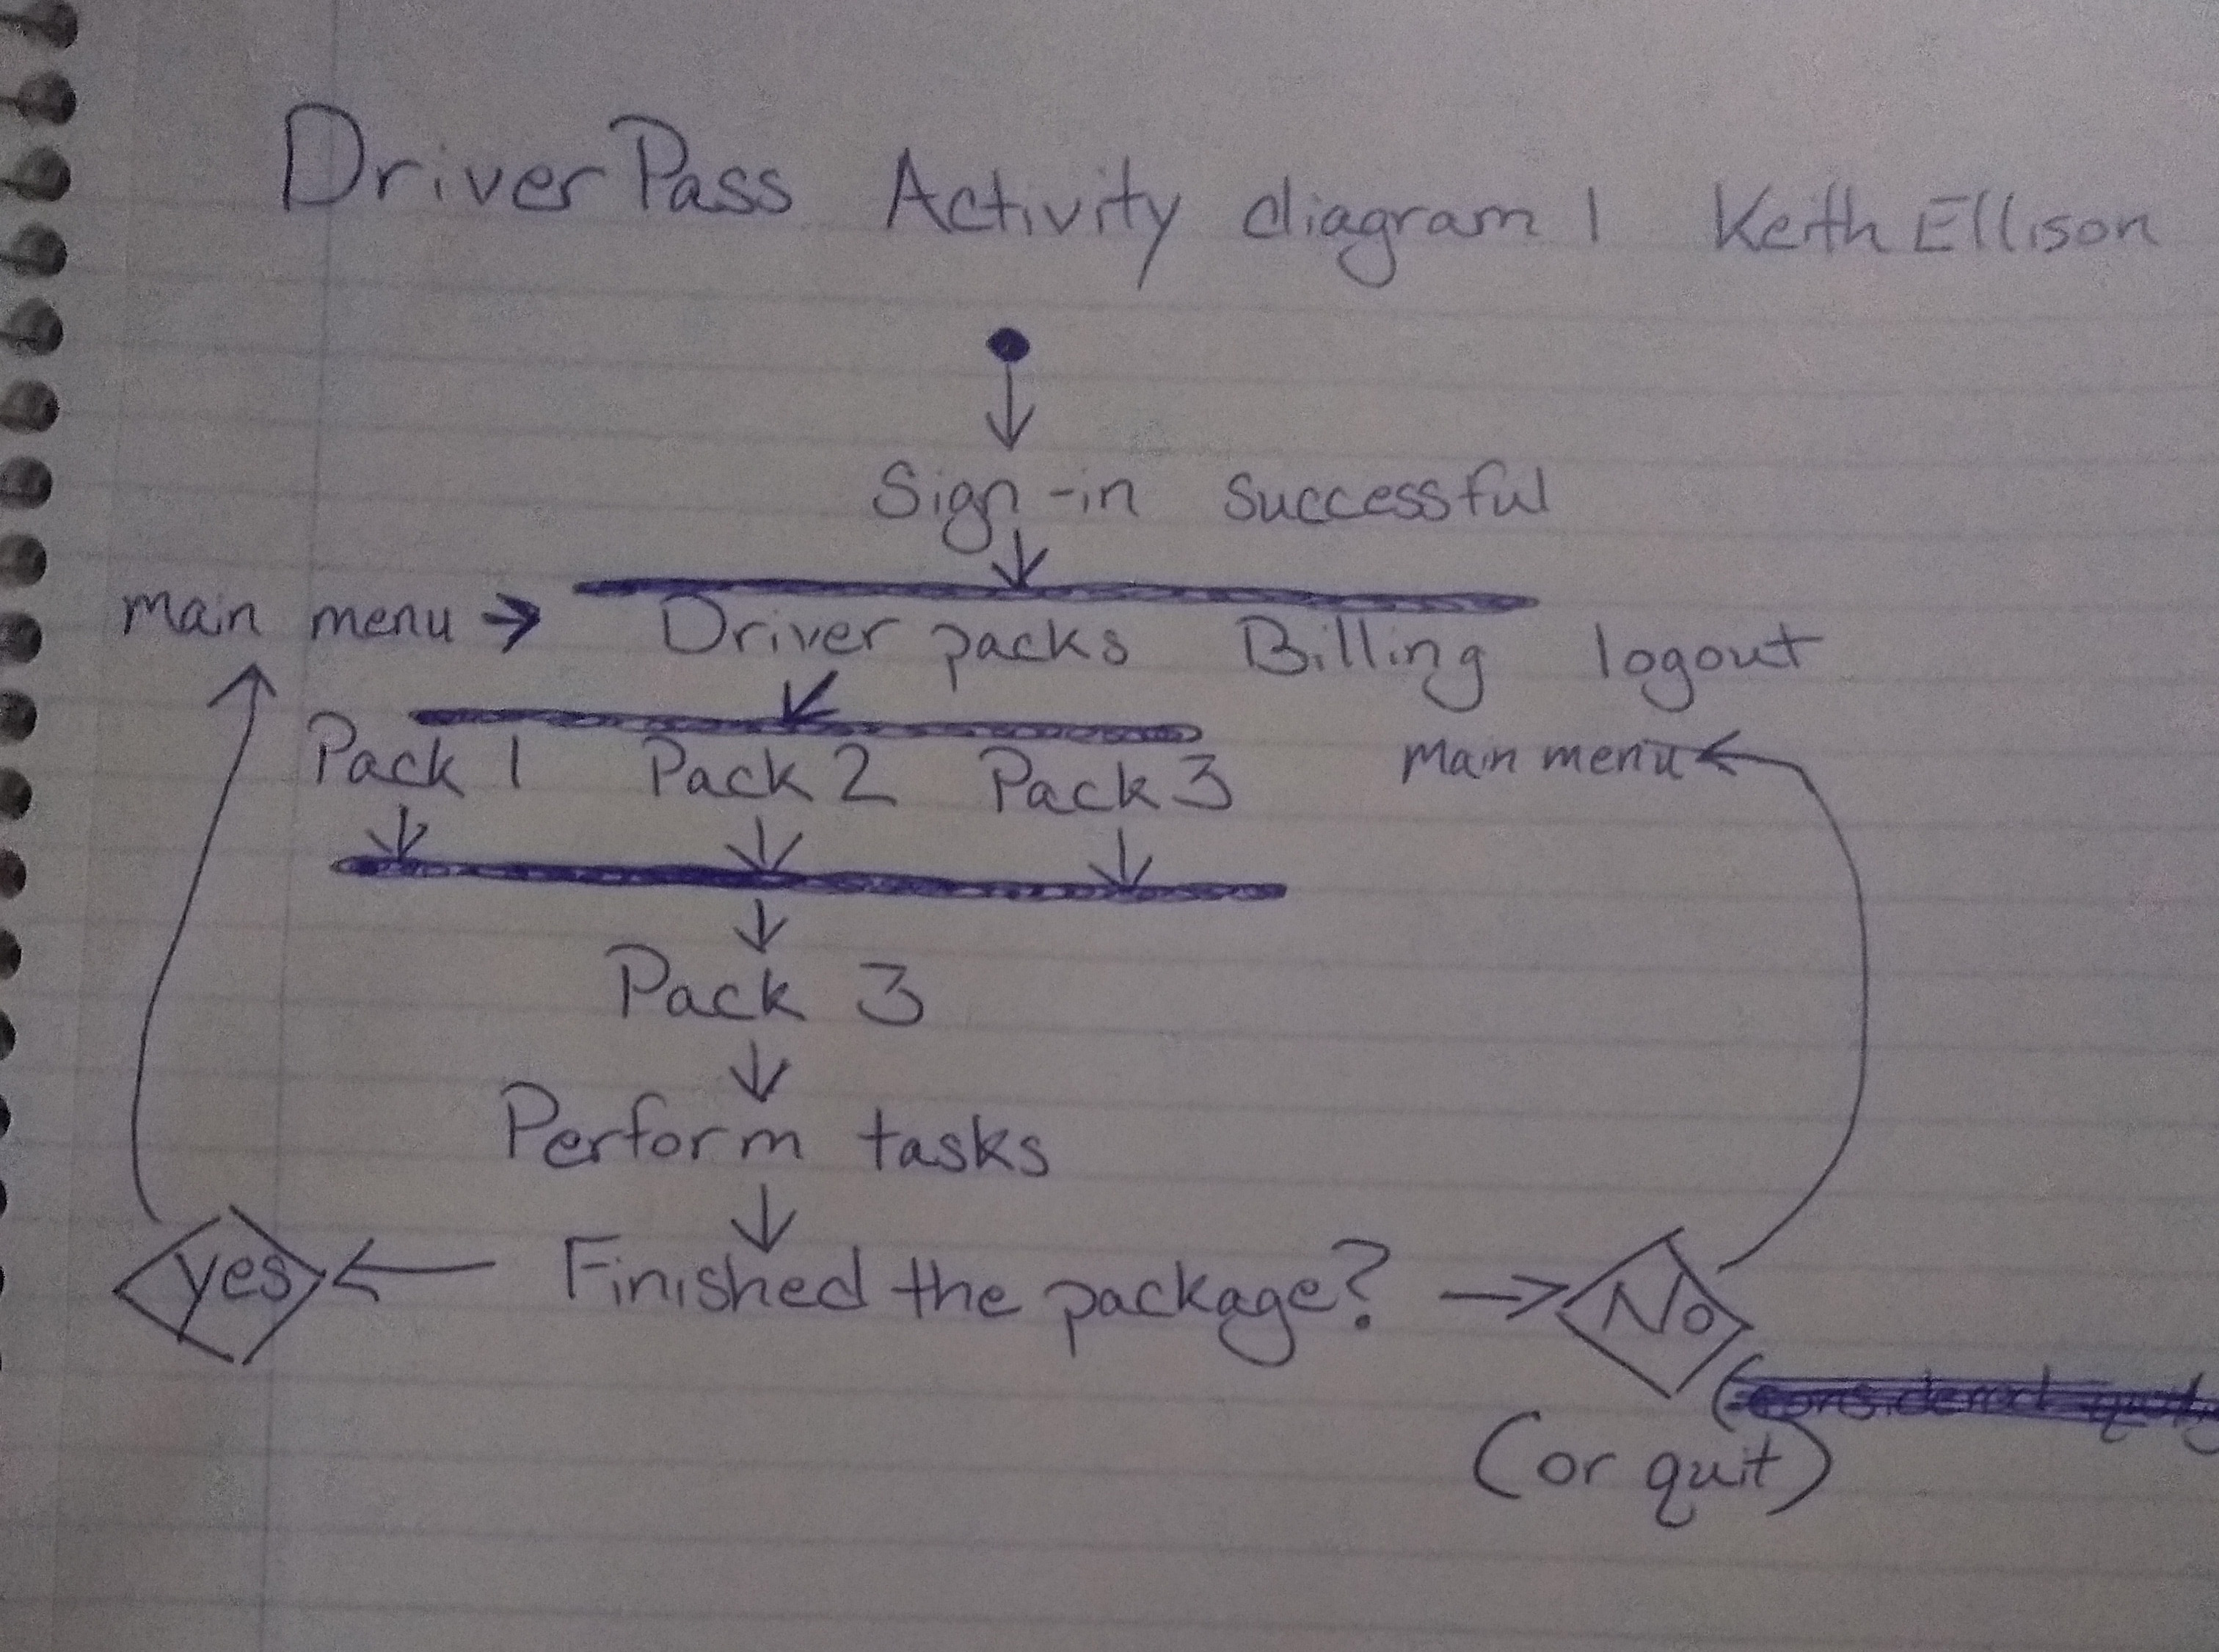 DriverPass Activity diagram 1 Keith Ellison
Sign-in successful
main menu → Driver packs Billing logout
Pack 1 Pack 2 Pack 3 main menu
Pack 3
Perform tasks
yes Finished the package? No
(or quit)